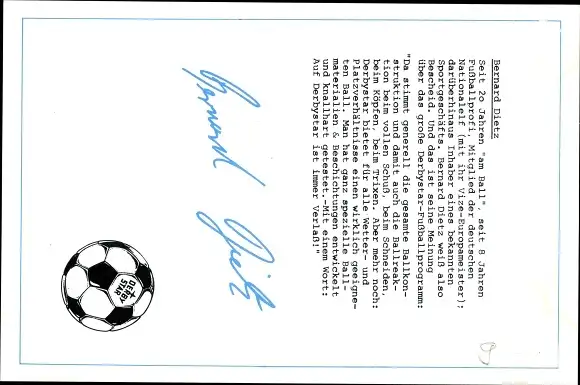 Bernard Dietz
Seit 20 Jahren "am Ball", seit 8 Jahren
Fußballprofi. Mitglied der deutschen
Nationalelf (mit ihr Vize-Europameister);
darüberhinaus Inhaber eines bekannten
Sportgeschäfts. Bernard Dietz weiß also
Bescheid. Und das ist seine Meinung
über das große Derbystar-Fußballprogramm:
"Da stimmt generell die gesamte Ballkon-
struktion und damit auch die Ballreak-
tion beim vollen Schuß, beim Schneiden,
beim Köpfen, beim Trixen. Aber mehr noch:
Derbystar bietet für alle Wetter- und
Platzverhältnisse einen wirklich geeigne-
ten Ball. Man hat ganz spezielle Ball-
materialien & Beschichtungen entwickelt
und knallhart getestet.-Mit einem Wort:
Auf Derbystar ist immer Verlaß!"
Bernard Dietz
DERBY
STAR
9